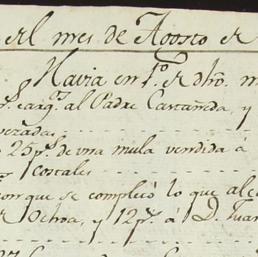 el mes de Agosto de
Havia en 1º de dho. m
carg.s al Padre Castañeda, y
25 p.s de vna mula vendida à
costales
con que se completó lo que al
Ochoa, y 12 p.s à D. Juan